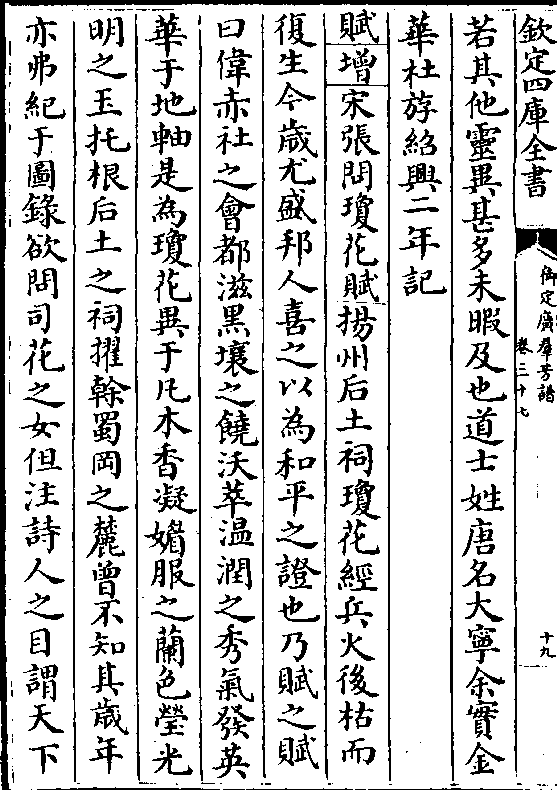 欽定四庫全書
御定廣羣芳譜
卷三十七
十九
若其他靈異甚多未暇及也道士姓唐名大寧余實金
華杜斿紹興二年記
賦增宋張問瓊花賦揚州后土祠瓊花經兵火後枯而
復生今歲尤盛邦人喜之以為和平之證也乃賦之賦
曰偉赤社之會都滋黑壤之饒沃萃温潤之秀氣發英
華于地軸是為瓊花異于凡木香凝媚服之蘭色瑩光
明之玉托根后土之祠擢榦蜀岡之麓曾不知其歲年
亦弗紀于圖錄欲問司花之女但注詩人之目謂天下